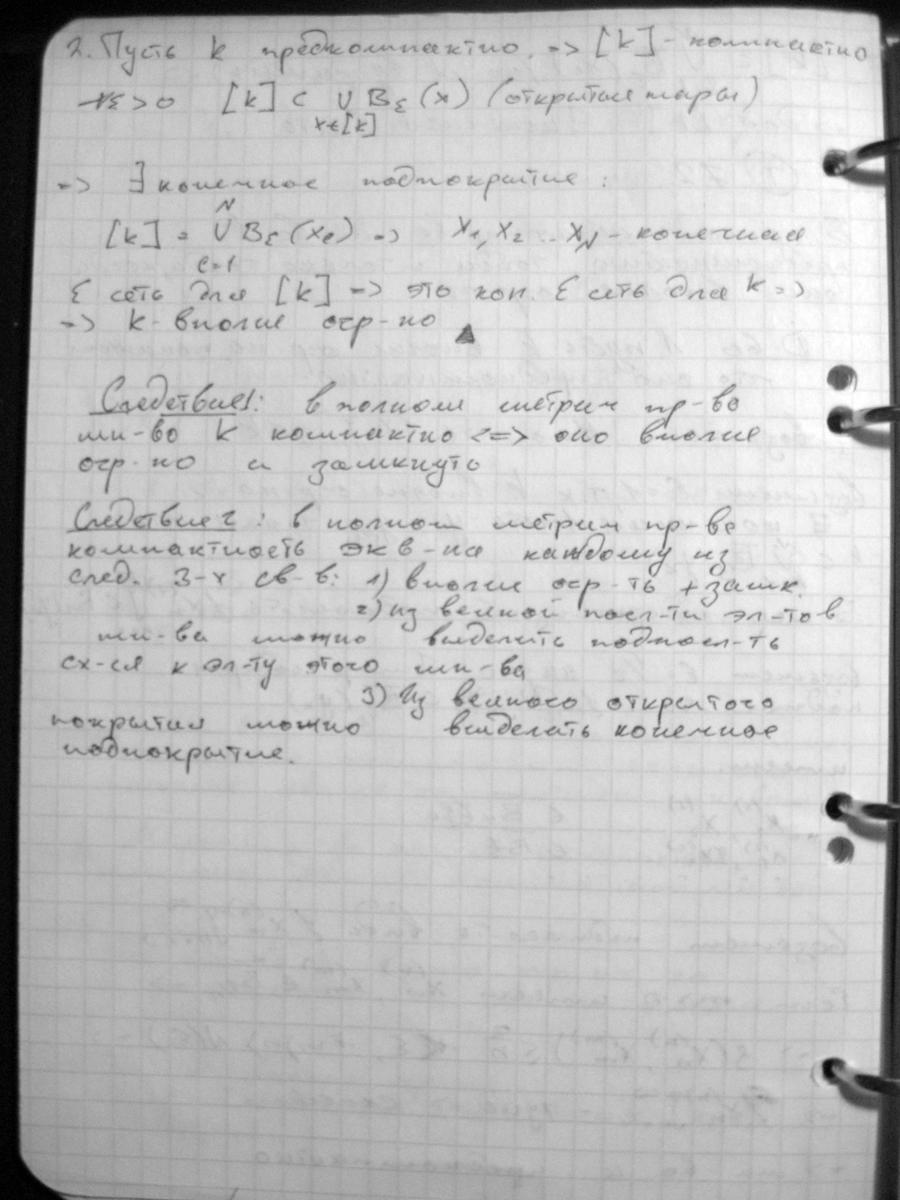 2. Пусть k предкомпактно. => [k] - компактно
∀ε>0 [k] ⊂ ∪ B_ε(x) (открытые шары)
x∈[k]
=> ∃ конечное подпокрытие:
N
[k] = ∪ B_ε(x_i) => x₁, x₂ .. x_N - конечная
i=1
ε сеть для [k] => это кон. ε сеть для k =>
=> k - вполне огр-но ▲
Следствие1: в полном метрич пр-ве
мн-во k компактно <=> оно вполне
огр-но и замкнуто
Следствие 2: в полном метрич пр-ве
компактность экв-на каждому из
след. 3-х св-в: 1) вполне огр-ть + замк.
2) из всякой посл-ти эл-тов
мн-ва можно выделить подпосл-ть
сх-ся к эл-ту этого мн-ва
3) Из всякого открытого
покрытия можно выделать конечное
подпокрытие.